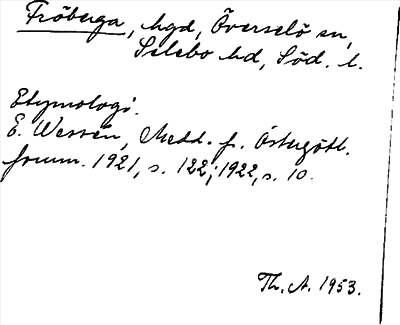 Fröberga, hgd, Överselö sn,
Selebo hd, Söd. l.
Etymologi.
E. Wessén, Medd. f. Östergötl.
fornm. 1921, s. 122; 1922, s. 10.
Th. A. 1953.